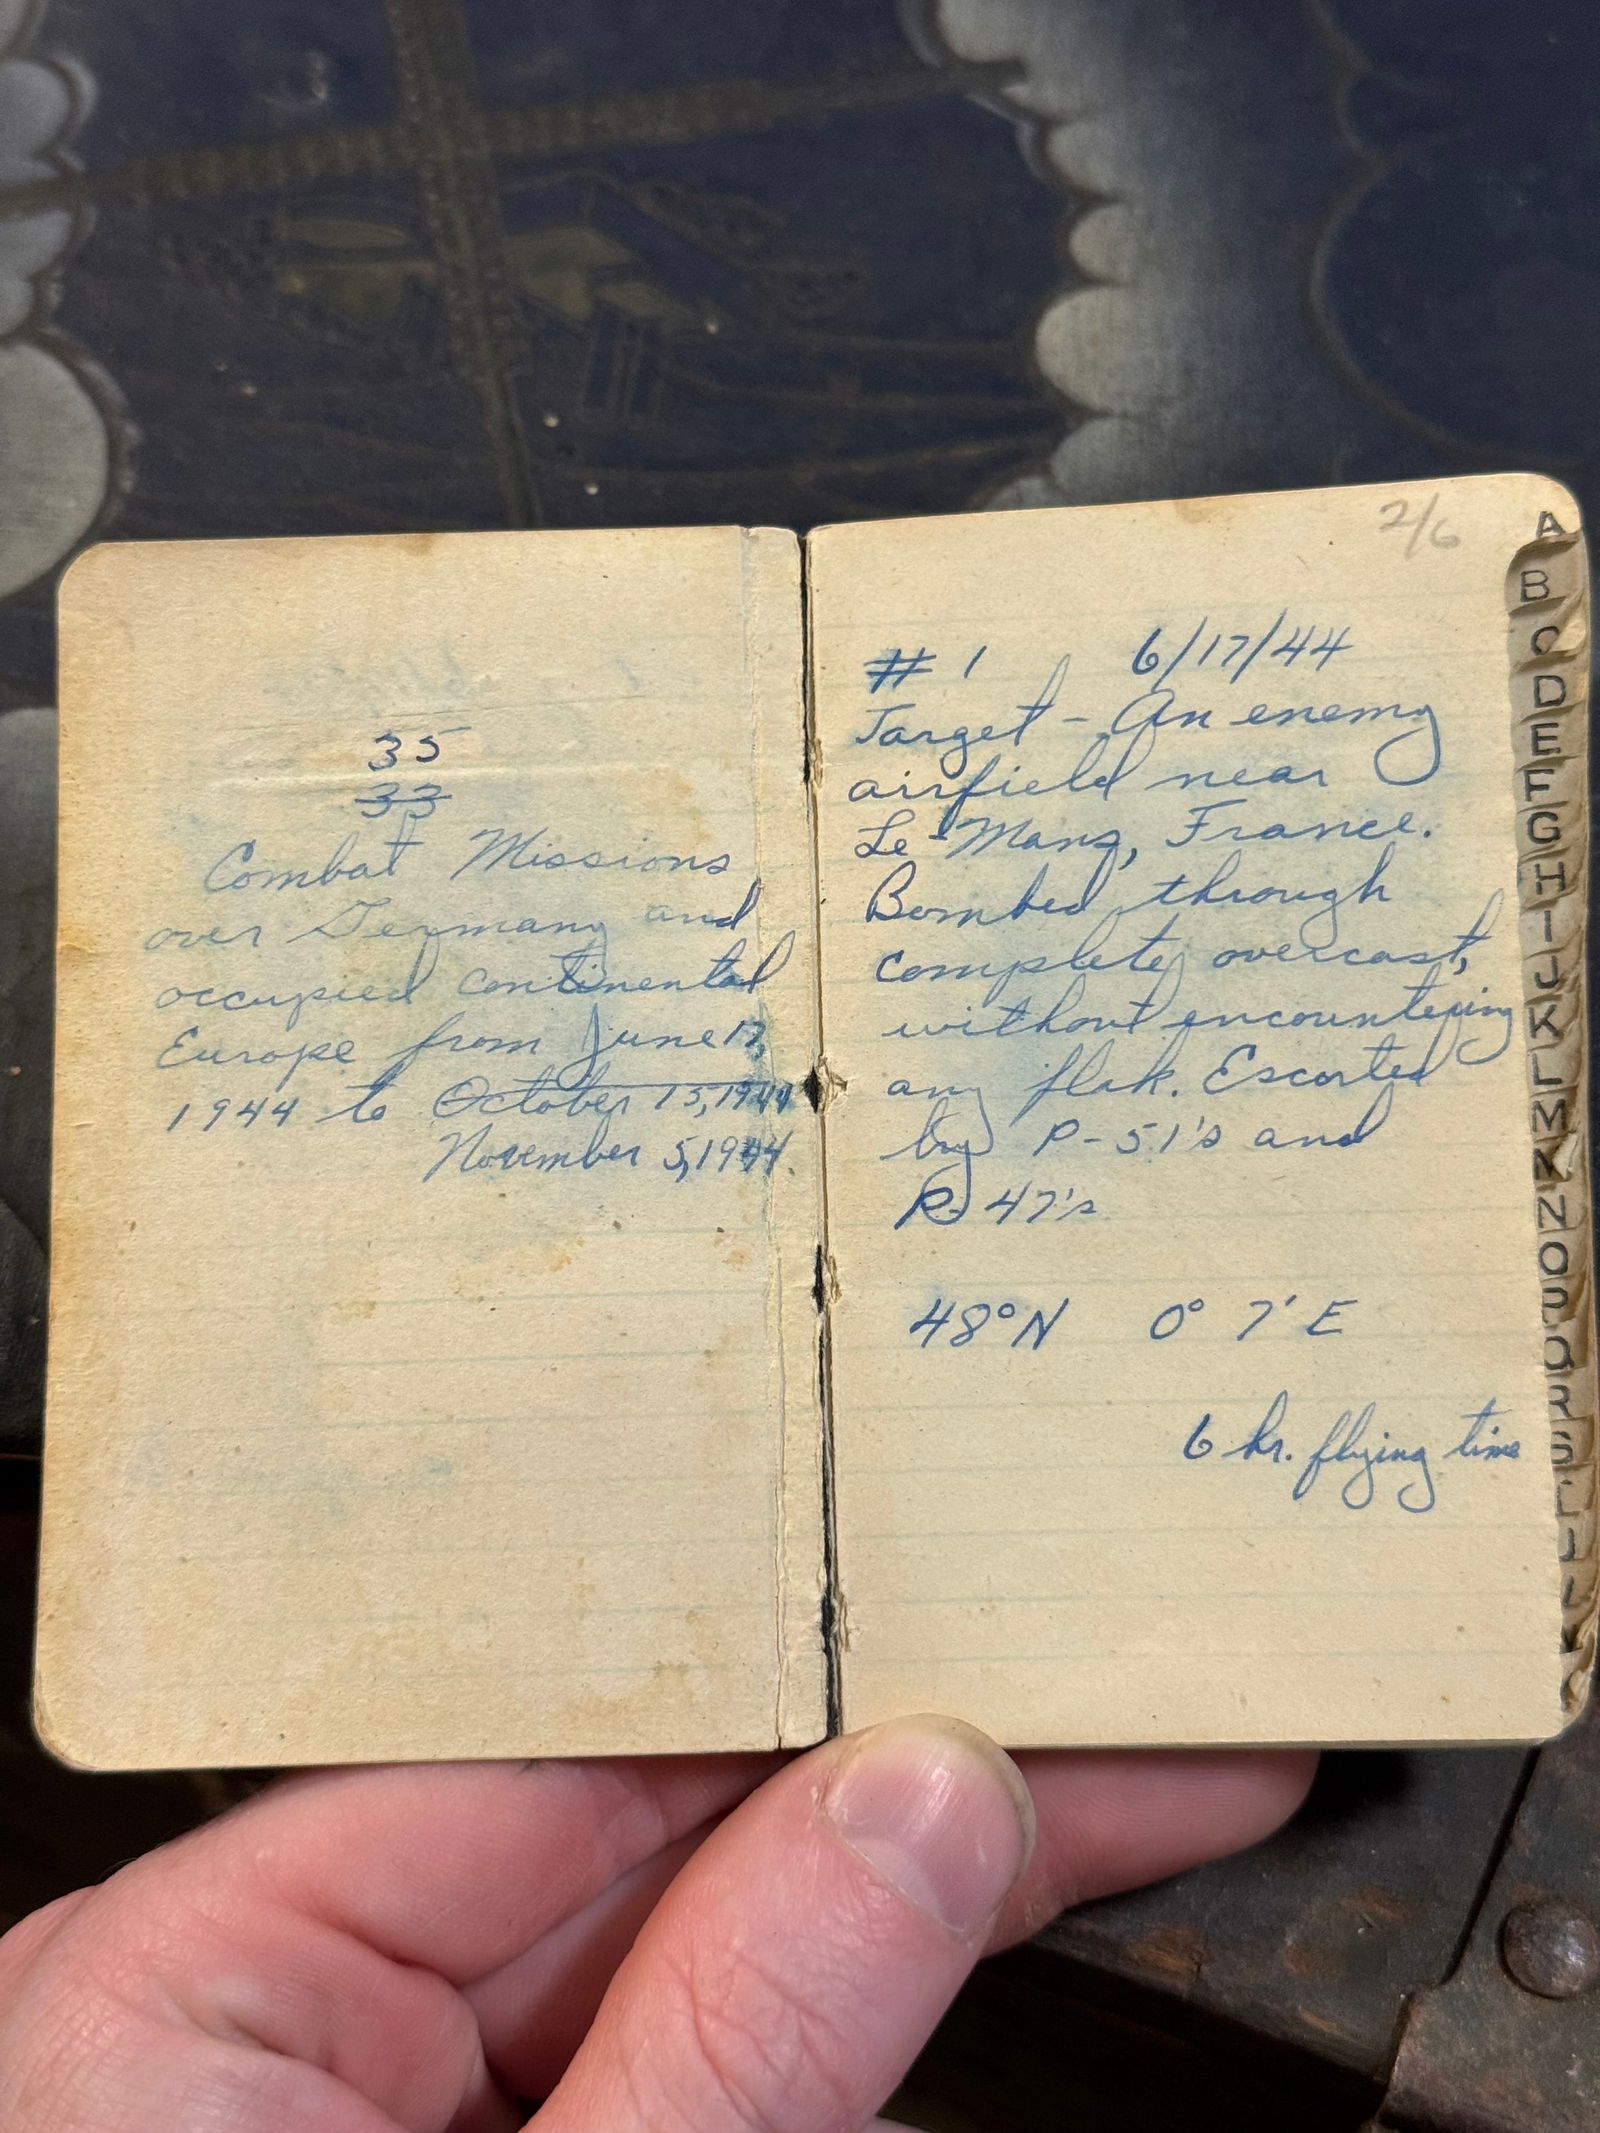 35
33
Combat Missions
over Germany and
occupied continental
Europe from June 17,
1944 to October 15, 1944
November 5, 1944.
2/6
# 1 6/17/44
Target - An enemy
airfield near
Le Mans, France.
Bombed through
complete overcast,
without encountering
any flak. Escorted
by P-51's and
P-47's
48° N 0° 7' E
6 hr. flying time
A
B
C
D
E
F
G
H
I
J
K
L
M
N
O